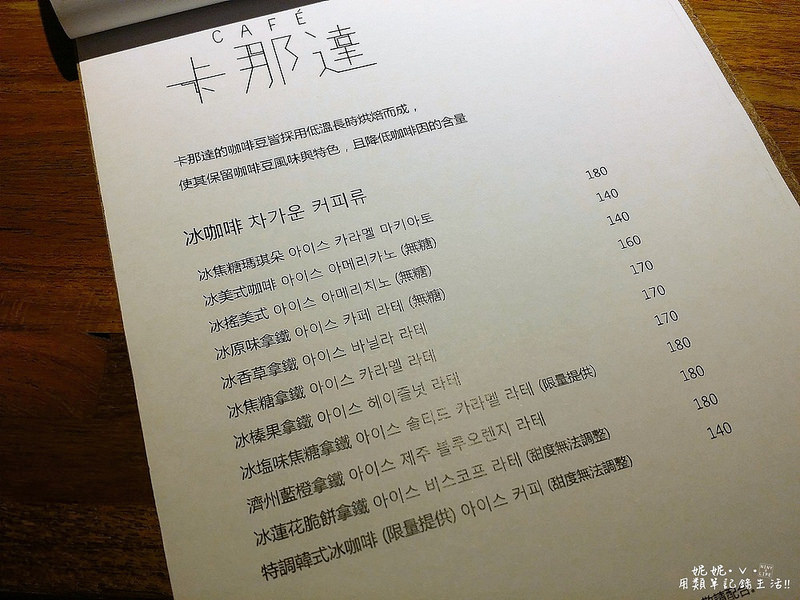 CAFÉ
卡那達
卡那達的咖啡豆皆採用低溫長時烘焙而成，
使其保留咖啡豆風味與特色，且降低咖啡因的含量
冰咖啡 차가운 커피류
冰焦糖瑪琪朵 아이스 카라멜 마키아토 180
冰美式咖啡 아이스 아메리카노 (無糖) 140
冰搖美式 아이스 아메리치노 (無糖) 140
冰原味拿鐵 아이스 카페 라테 (無糖) 160
冰香草拿鐵 아이스 바닐라 라테 170
冰焦糖拿鐵 아이스 카라멜 라테 170
冰榛果拿鐵 아이스 헤이즐넛 라테 170
冰塩味焦糖拿鐵 아이스 솔티드 카라멜 라테 (限量提供) 180
濟州藍橙拿鐵 아이스 제주 블루오렌지 라테 180
冰蓮花脆餅拿鐵 아이스 비스코프 라테 (甜度無法調整) 180
特調韓式冰咖啡 (限量提供) 아이스 커피 (甜度無法調整) 140
妮妮
用類單記錄生活!!